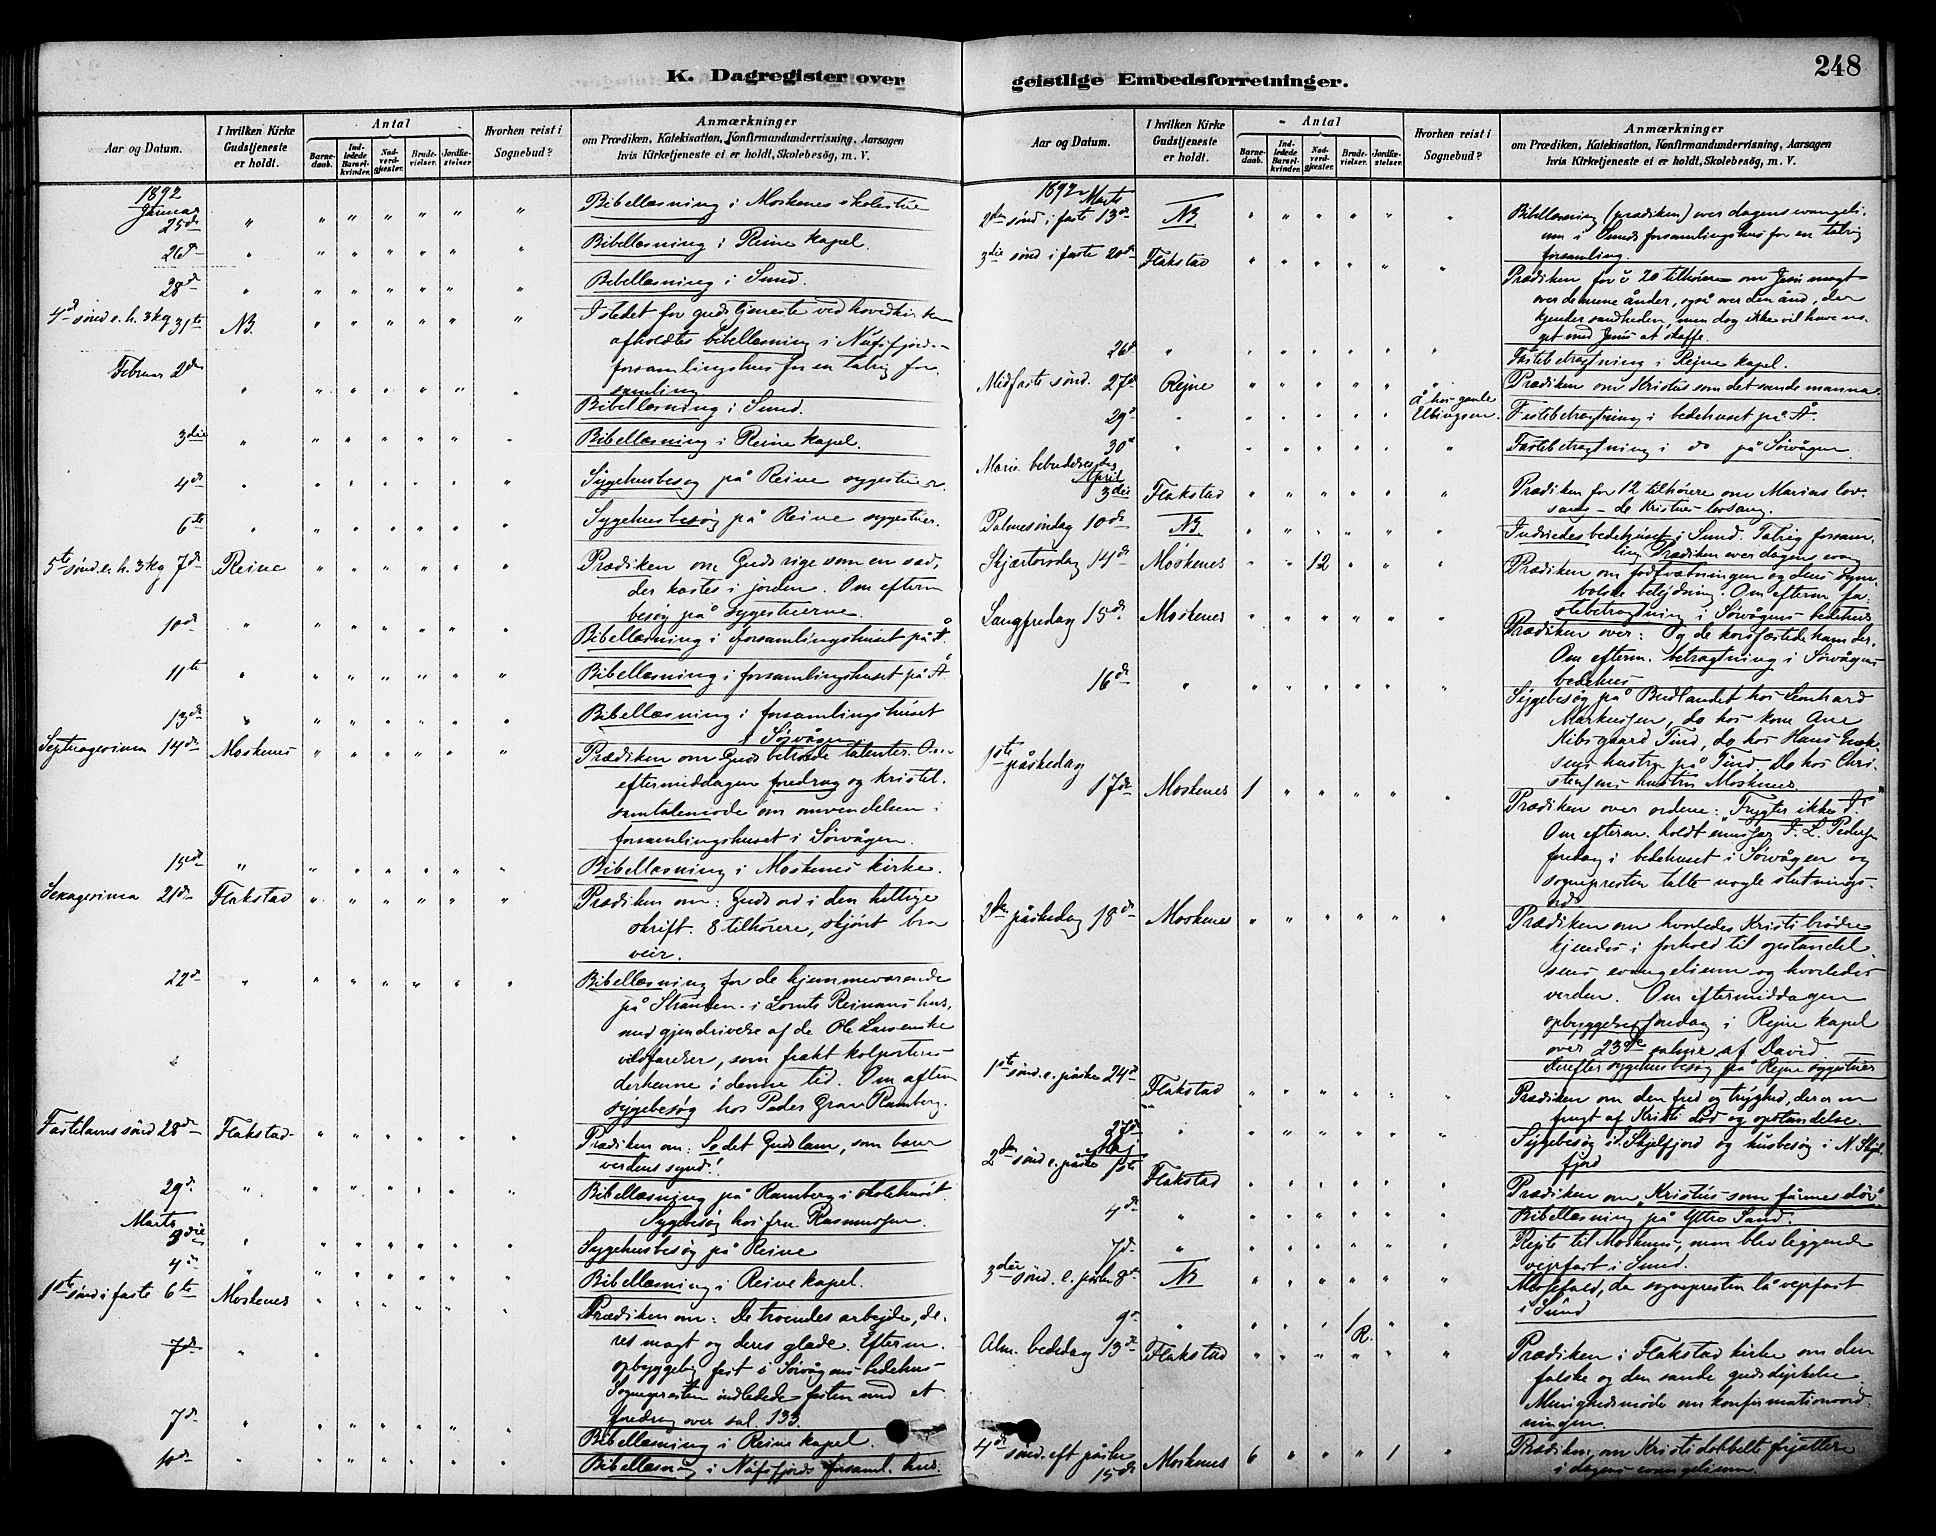 248
K. Dagregister over
geistlige Embedsforretninger.
Aar og Datum.
I hvilken Kirke Gudstjeneste er holdt.
Antal
Barnedaab.
Indledede Barselkvinder.
Nadverdgjester.
Brudevielser.
Jordfæstelser.
Hvorhen reist i Sognebud?
Anmærkninger
om Prædiken, Katekisation, Konfirmandundervisning, Aarsagen
hvis Kirketjeneste ei er holdt, Skolebesøg, m. V.
1892
Januar 25de " " " " " " " Bibellæsning i Moskenes skolestue
26de " " " " " " " Bibellæsning i Reine kapel.
28de " " " " " " " Bibellæsning i Sund.
4de sønd. e. h. 3 kg 31te NB " " " " " " Istedet for gudstjeneste ved hovedkirken
afholdtes bibellæsning i Nufsfjords
forsamlingshus for en talrig for-
samling
Februar 2den " " " " " " " Bibellæsning i Sund.
3die " " " " " " " Bibellæsning i Reine kapel.
4de " " " " " " " Sygehusbesøg på Reine sygestuer.
6te " " " " " " " Sygehusbesøg på Reine sygestuer.
5te sønd. e. h. 3 kg 7de Reine " " " " " " Prædiken om Guds rige som en sæd,
der kastes i jorden. Om efterm
besøg på sygestuerne
10de " " " " " " " Bibellæsning i forsamlingshuset på Å.
11te " " " " " " " Bibellæsning i forsamlingshuset på Å
13de " " " " " " " Bibellæsning i forsamlingshuset
i Sørvågen
Septuagesima 14de Moskenes " " " " " " Prædiken om Guds betroede talenter. Om
eftermiddagen foredrag og kristel.
samtalemøde om omvendelsen i
forsamlingshuset i Sørvågen.
15de " " " " " " " Bibellæsning i Moskenes kirke.
Sexagesima 21de Flakstad " " " " " " Prædiken om: Guds ord i den hellige
skrift. 8 tilhørere, skjønt bra
veir.
22de " " " " " " " Bibellæsning for de hjemmeværende
på Stranden i Lornts Reinans hus,
med gjendrivelse af de Ole Larsenske
vildfarelser, som frakt kolporteres
derhenne i denne tid. Om aften
sygebesøg hos Peder Grav Ramberg.
Fastelavns sønd 28de Flakstad " " " " " " Prædiken om: Se det Guds lam, som bærer
verdens synd!
29de " " " " " " " Bibellæsning på Ramberg i skolehuset.
Sygebesøg hos fru Rasmussen.
Marts 3die " " " " " " " Sygehusbesøg på Reine
4de " " " " " " " Bibellæsning i Reine kapel.
1ste sønd i faste 6te Moskenes " " " " " " Prædiken om: De troendes arbejde, de-
res magt og deres glæde. Efterm.
opbyggelig fest i Sørvågens bedehus
Sognepresten indledede festen med et
foredrag over sal. 133.
7de " "
7de " " " " " " " Bibellæsning i Reine kapel.
10de " " " " " " " Bibellæsning i Nufsfjords forsaml. hus.
Aar og Datum.
I hvilken Kirke Gudstjeneste er holdt.
Antal
Barnedaab.
Indledede Barselkvinder.
Nadverdgjester.
Brudevielser.
Jordfæstelser.
Hvorhen reist i Sognebud?
Anmærkninger
om Prædiken, Katekisation, Konfirmandundervisning, Aarsagen
hvis Kirketjeneste ei er holdt, Skolebesøg, m. V.
1892 Marts
2den sønd. i faste 13de NB " " " " " " Bibellæsning (prædiken) over dagens evangeli-
um i Sunds forsamlingshus for en talrig
forsamling.
3die sønd i faste 20de Flakstad " " " " " " Prædiken for c 20 tilhørere om Jesu magt
over de urene ånder, også over den ånd, der
kjender sandheden, men dog ikke vil have no-
get med Jesus at skaffe.
26de " " " " " " " Fastebetragtning i Rejne kapel.
Midfaste sønd. 27de Rejne " " " " " " Prædiken om Kristus som det sande manna.
29de " " " " " " Å hos gamle
Ellingsen. Fastebetragtning i bedehuset på Å.
30te " " " " " " " Fastebetragtning i do på Sørvågen
Mariæ bebudelsesdag
April
3die Flakstad " " " " " " Prædiken for 12 tilhørere om Marias lov-
sang - de Kristnes lovsang.
Palmesøndag 10de NB " " " " " " Indviedes bedehuset i Sund. Talrig forsam-
ling Prædiken over dagens evang
Skjærtorsdag 14de Moskenes " " 12 " " " Prædiken om fodtvætningen og dens sym-
bolske betydning. Om efterm fa-
stebetragtning i Sørvågens bedehus
Langfredag 15de Moskenes " " " " " " Prædiken over: Og de korsfæstede ham der.
Om efterm. betragtning i Sørvågens
bedehus
16de " " " " " " " Sygebesøg på Budlandet hos Leonhard
Markussen, do hos kone Ane
Nibsgaard Tind, do hos Hans Enok-
sens hustru på Tind. Do hos Chri-
stensens hustru Moskenes
1ste påskedag
17de Moskenes 1 " " " " " Prædiken over ordene: "Frygter ikke I".
Om efterm. holdt emissær J. L. Pedersen
foredrag i bedehuset i Sørvågen og
sognepresten talte nogle slutnings-
ord
2den påskedag 18de Moskenes " " " " " " Prædiken om hvorledes Kristi brødre
kjendes i forhold til opstandel-
sens evangelium og hvorledes
verden. Om eftermiddagen
opbyggelsesforedrag i Rejne kapel
over 23de salme af David.
derefter sygehusbesøg på Rejne sygestuer
1ste sønd. e. påske 24de Flakstad " " " " " " Prædiken om den fred og tryghed, der er en
frugt af Kristi død og opstandelse
27de " " " " " " " Sygebesøg i S. Skjelfjord og husbesøg i N. Skjel-
fjord
Maj
2den sønd e. påske 1ste Flakstad " " " " " " Prædiken om "Kristus som fårenes dør"
4de " " " " " " " Bibellæsning på Yttre Sand.
7de " " " " " " " Rejste til Moskenes, men blev liggende
vejrfast i Sund.
3die sønd. e. påske 8de NB " " " " " " Messefald, da sognepresten lå vejrfast
i Sund
9de " " " " 1 R. " "
Alm. bededag 13de Flakstad " " " " " " Prædiken i Flakstad kirke om den
falske og den sande gudsdyrkelse
Menighedsmøde om konfirmationsord-
ningen.
4de sønd. eft påske 15de Moskenes 6 " " " 1 " Prædiken om Kristi dobbelte forjættelse
i dagens evangelium.